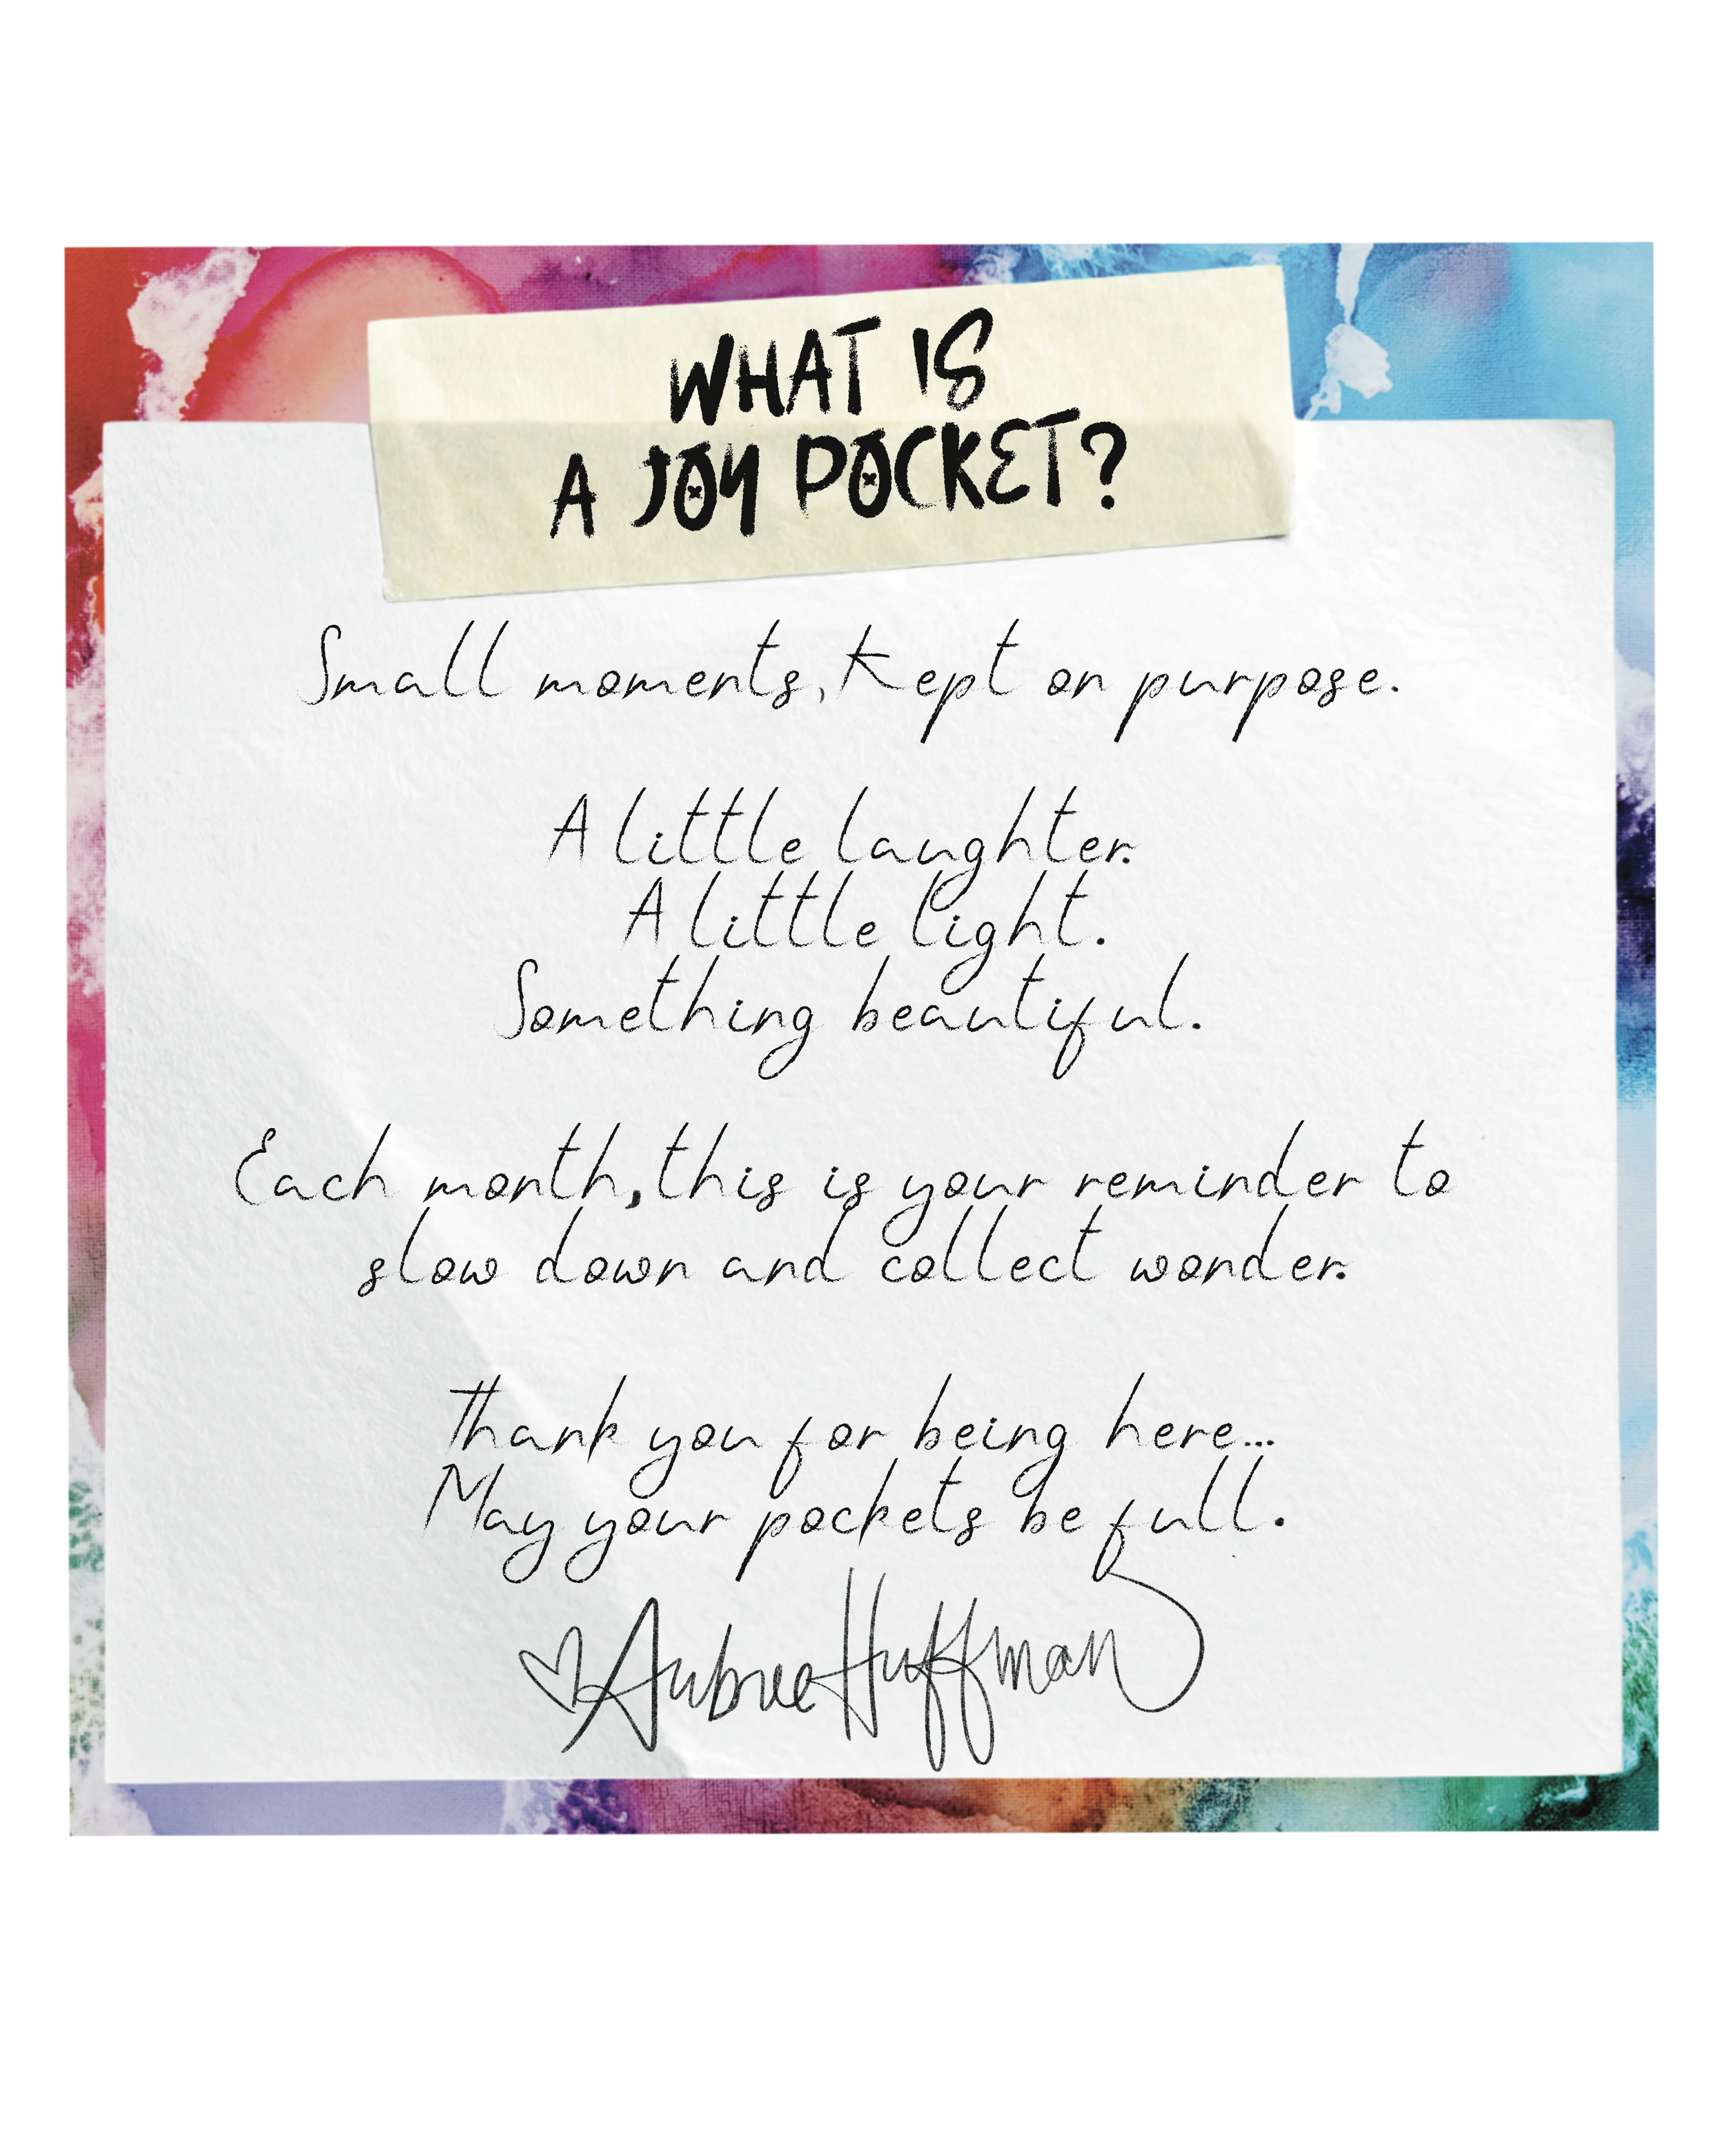 WHAT IS
A JOY POCKET?
Small moments, Kept on purpose.
A little laughter.
A little light.
Something beautiful.
Each month, this is your reminder to
slow down and collect wonder.
Thank you for being here...
May your pockets be full.
Aubree Huffman